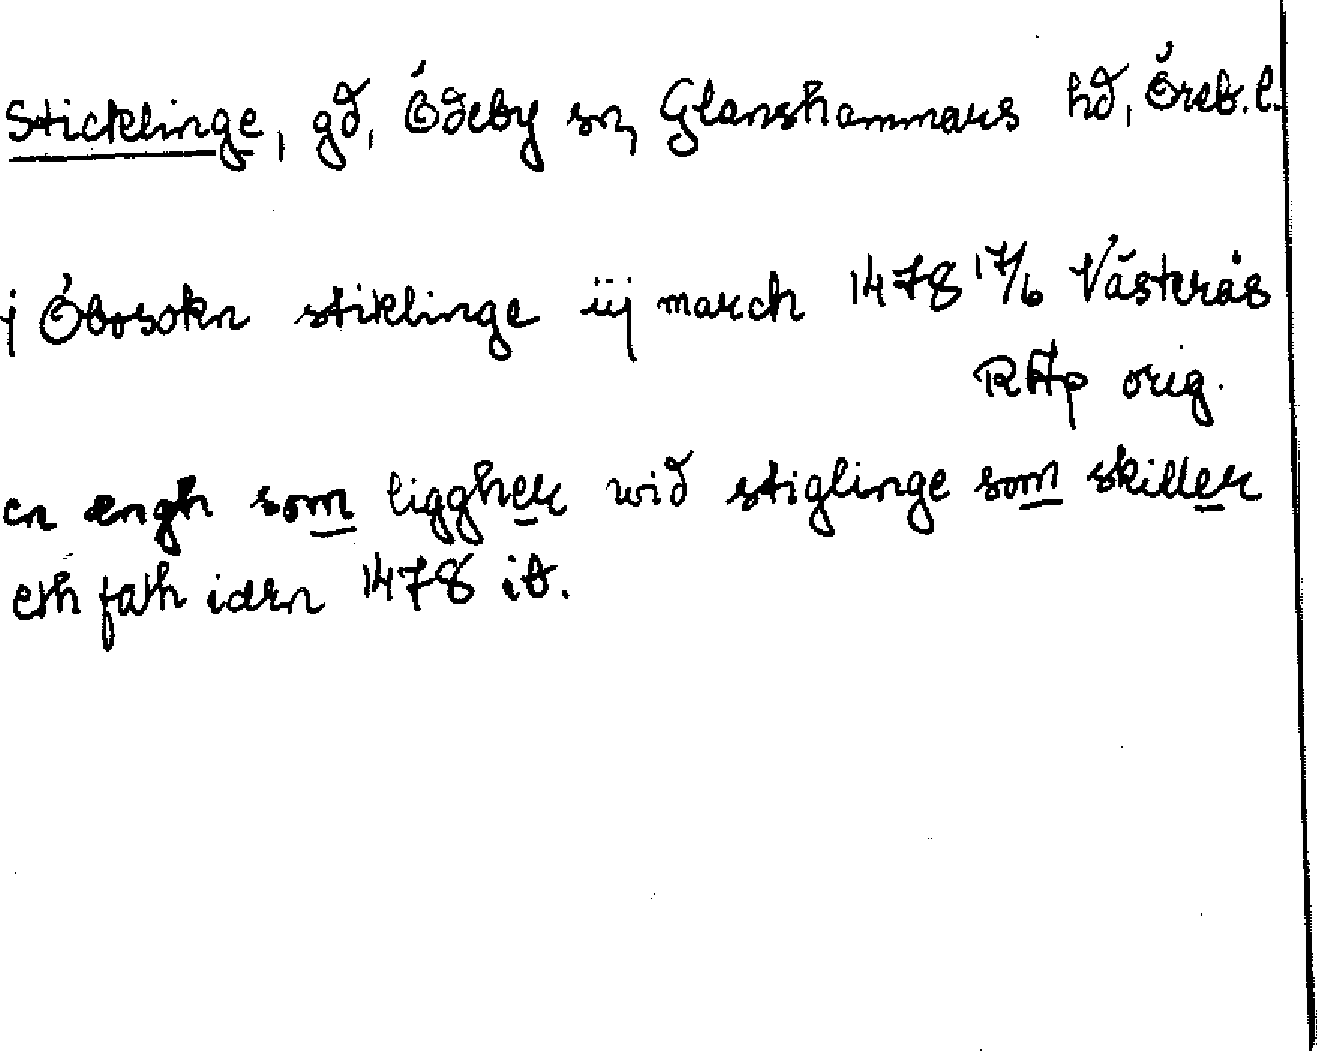 Sticklinge, gd, Ödeby sn, Glanshammars hd, Öreb. l.
j Öbosokn stiklinge iij march 1478 17/6 Västerås
RAp orig.
en ængh som liggher wid stiglinge som skiller
eth fath iden 1478 ib.